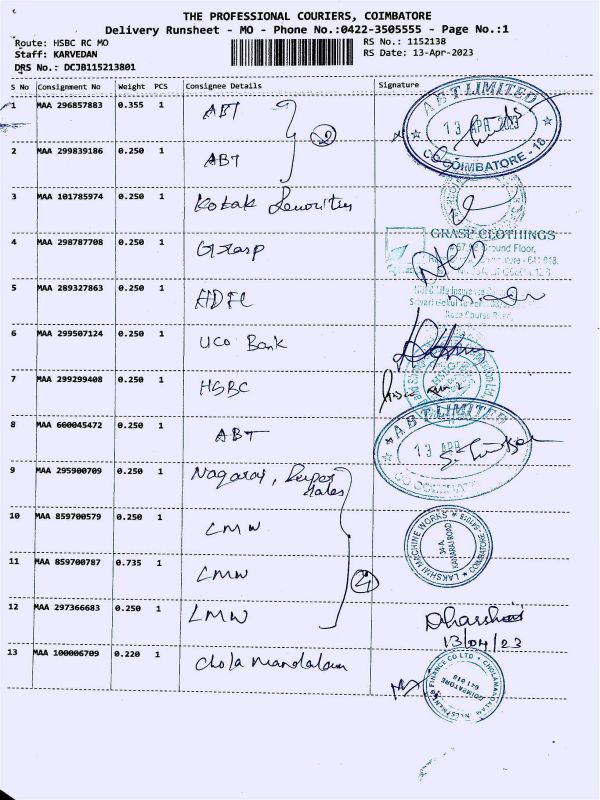 THE PROFESSIONAL COURIERS, COIMBATORE
Delivery Runsheet - MO - Phone No.:0422-3505555 - Page No.:1
Route: HSBC RC MO
Staff: KARVEDAN
DRS No.: DCJB115213801
RS No.: 1152138
RS Date: 13-Apr-2023
S No Consignment No Weight PCS Consignee Details Signature
1 MAA 296857883 0.355 1 ABT
ABT LIMITED
13 APR 2023
COIMBATORE - 18
2 MAA 299839186 0.250 1 ABT
3 MAA 101785974 0.250 1 Kotak Securities
4 MAA 298787708 0.250 1 Grasp
GRASP CLOTHINGS
Ground Floor,
641 018.
5 MAA 289327863 0.250 1 HDFC
Race Course Road,
6 MAA 299507124 0.250 1 UCO Bank
7 MAA 299299408 0.250 1 HSBC
8 MAA 600045472 0.250 1 ABT
ABT LIMITED
13 APR
9 MAA 295900709 0.250 1 Nagaraj, Super Sales
10 MAA 859700579 0.250 1 LMW
LAKSHMI MACHINE WORKS
34-A,
KAMARAJ ROAD
COIMBATORE
11 MAA 859700787 0.735 1 LMW
12 MAA 297366683 0.250 1 LMW
13/04/23
13 MAA 100006709 0.220 1 Chola Mandalam
CHOLAMANDALAM INVESTMENT & FINANCE CO LTD
COIMBATORE
641 018